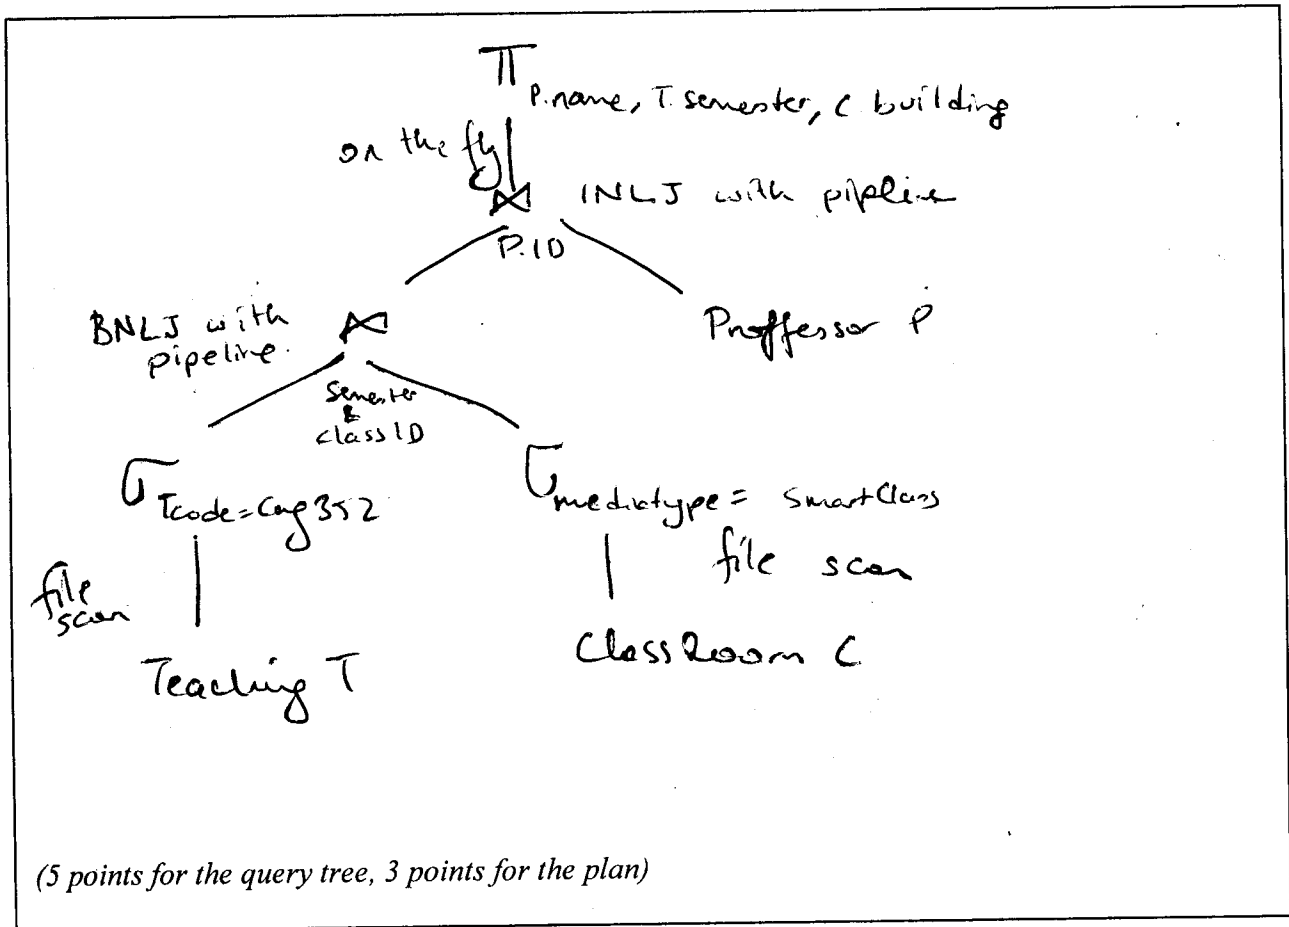 π
P.name, T.semester, C building
on the fly
⋈ INLJ with pipeline
P.ID
BNLJ with
pipeline.
⋈
Proffessor P
Semester
&
classID
σ Tcode=Cng352
σ mediatype= SmartClass
file
scan
file scan
Teaching T
ClassRoom C
(5 points for the query tree, 3 points for the plan)